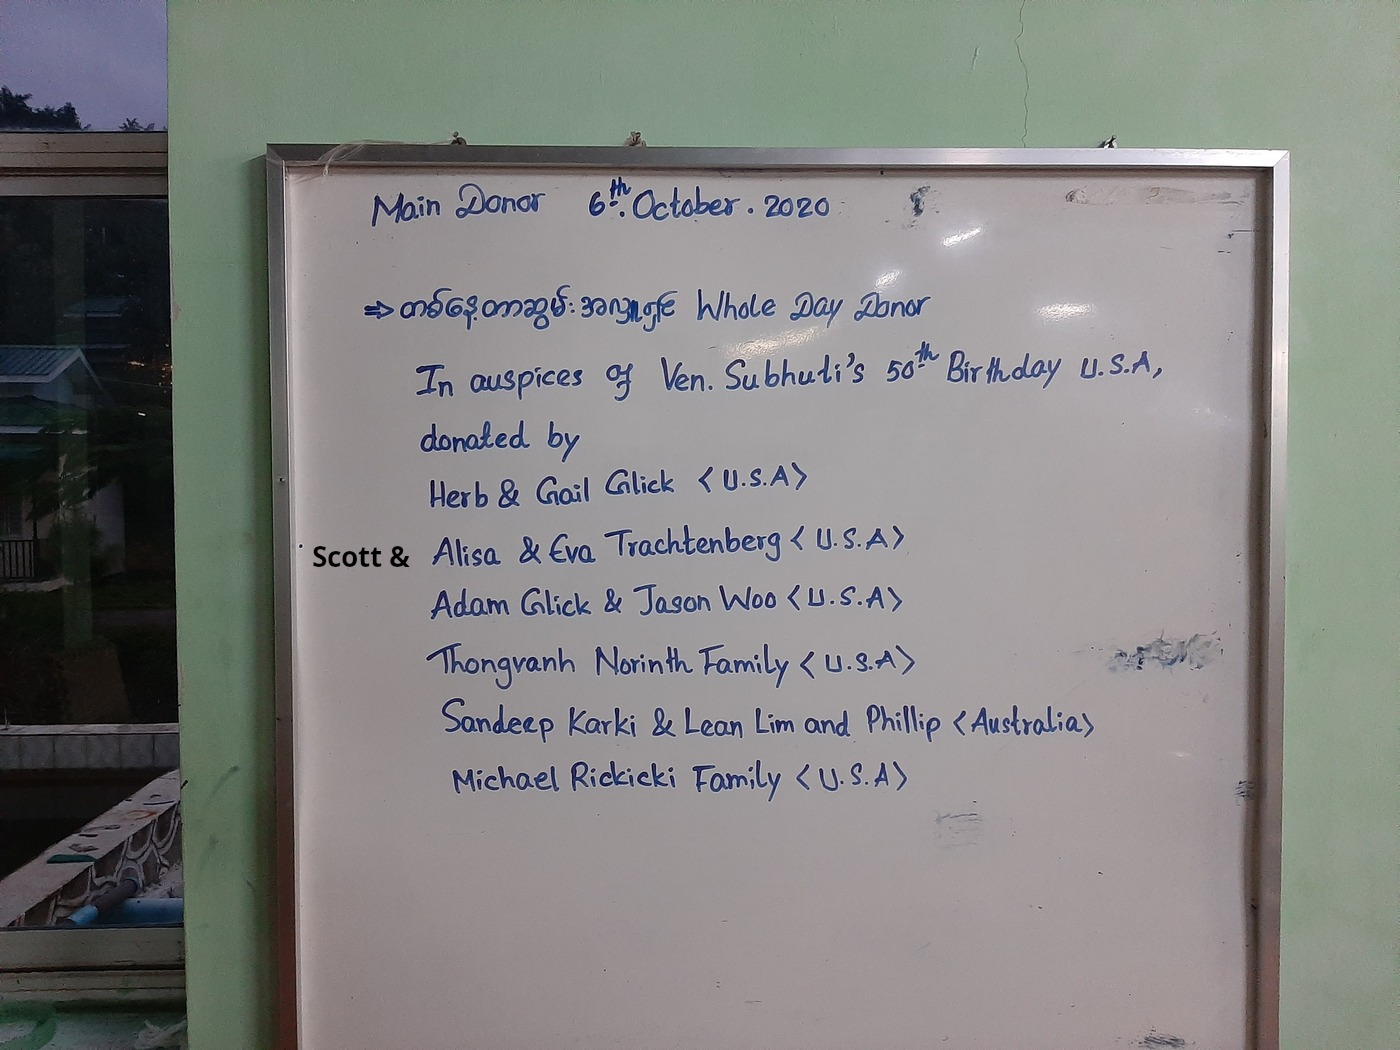 Main Donor 6th. October. 2020
⇒ တစ်နေ့တာဆွမ်းအလှူရှင် Whole Day Donor
In auspices of Ven. Subhuti's 50th Birthday U.S.A,
donated by
Herb & Gail Glick < U.S.A>
Scott & Alisa & Eva Trachtenberg < U.S.A>
Adam Glick & Jason Woo <U.S.A>
Thongvanh Norinth Family < U.S.A>
Sandeep Karki & Lean Lim and Phillip <Australia>
Michael Rickicki Family < U.S.A>